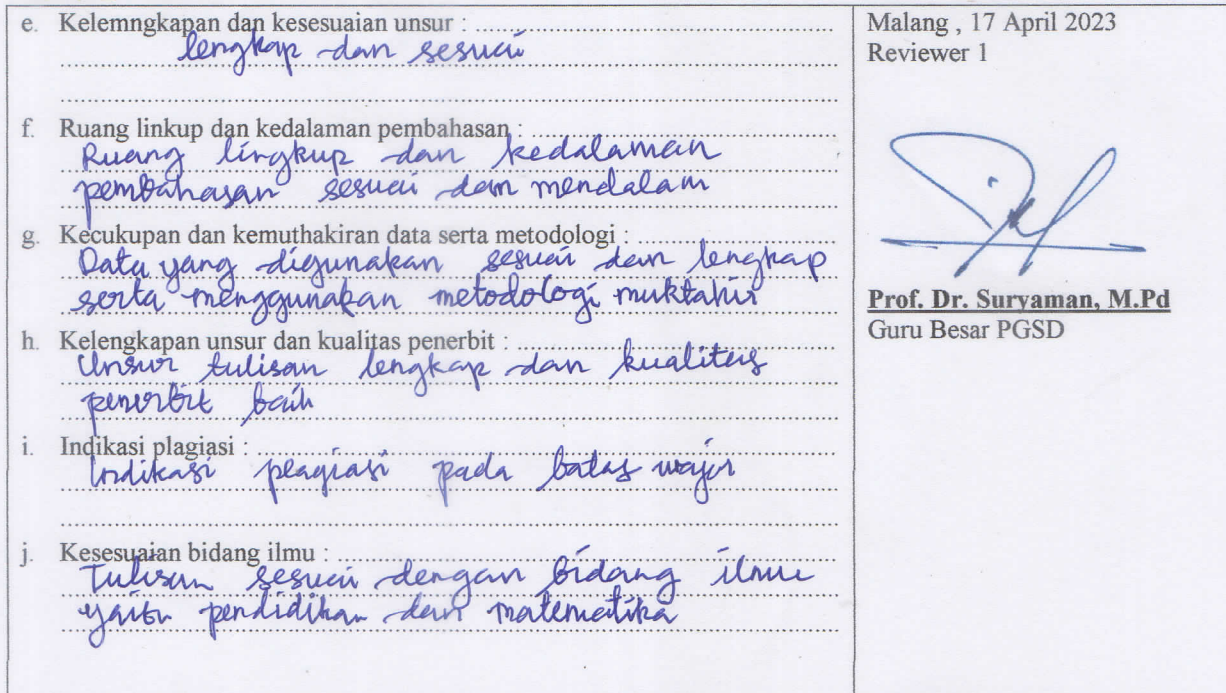 e. Kelemngkapan dan kesesuaian unsur :
lengkap dan sesuai
f. Ruang linkup dan kedalaman pembahasan :
Ruang lingkup dan kedalaman
pembahasan sesuai dan mendalam
g. Kecukupan dan kemuthakiran data serta metodologi :
Data yang digunakan sesuai dan lengkap
serta menggunakan metodologi muktahir
h. Kelengkapan unsur dan kualitas penerbit :
Unsur tulisan lengkap dan kualitas
penerbit baik
i. Indikasi plagiasi :
Indikasi plagiasi pada batas wajar
j. Kesesuaian bidang ilmu :
Tulisan sesuai dengan bidang ilmu
yaitu pendidikan dan matematika
Malang , 17 April 2023
Reviewer 1
Prof. Dr. Suryaman, M.Pd
Guru Besar PGSD